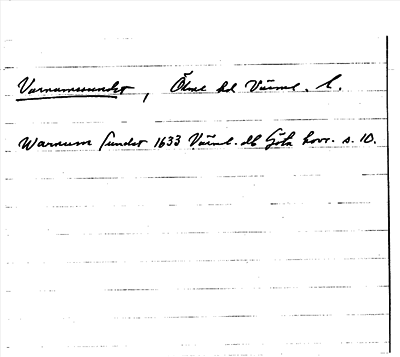 Varnumssundet, Ölme hd Värml. l.
Warnum sundet 1633 Värml. db Göta hovr. s. 10.